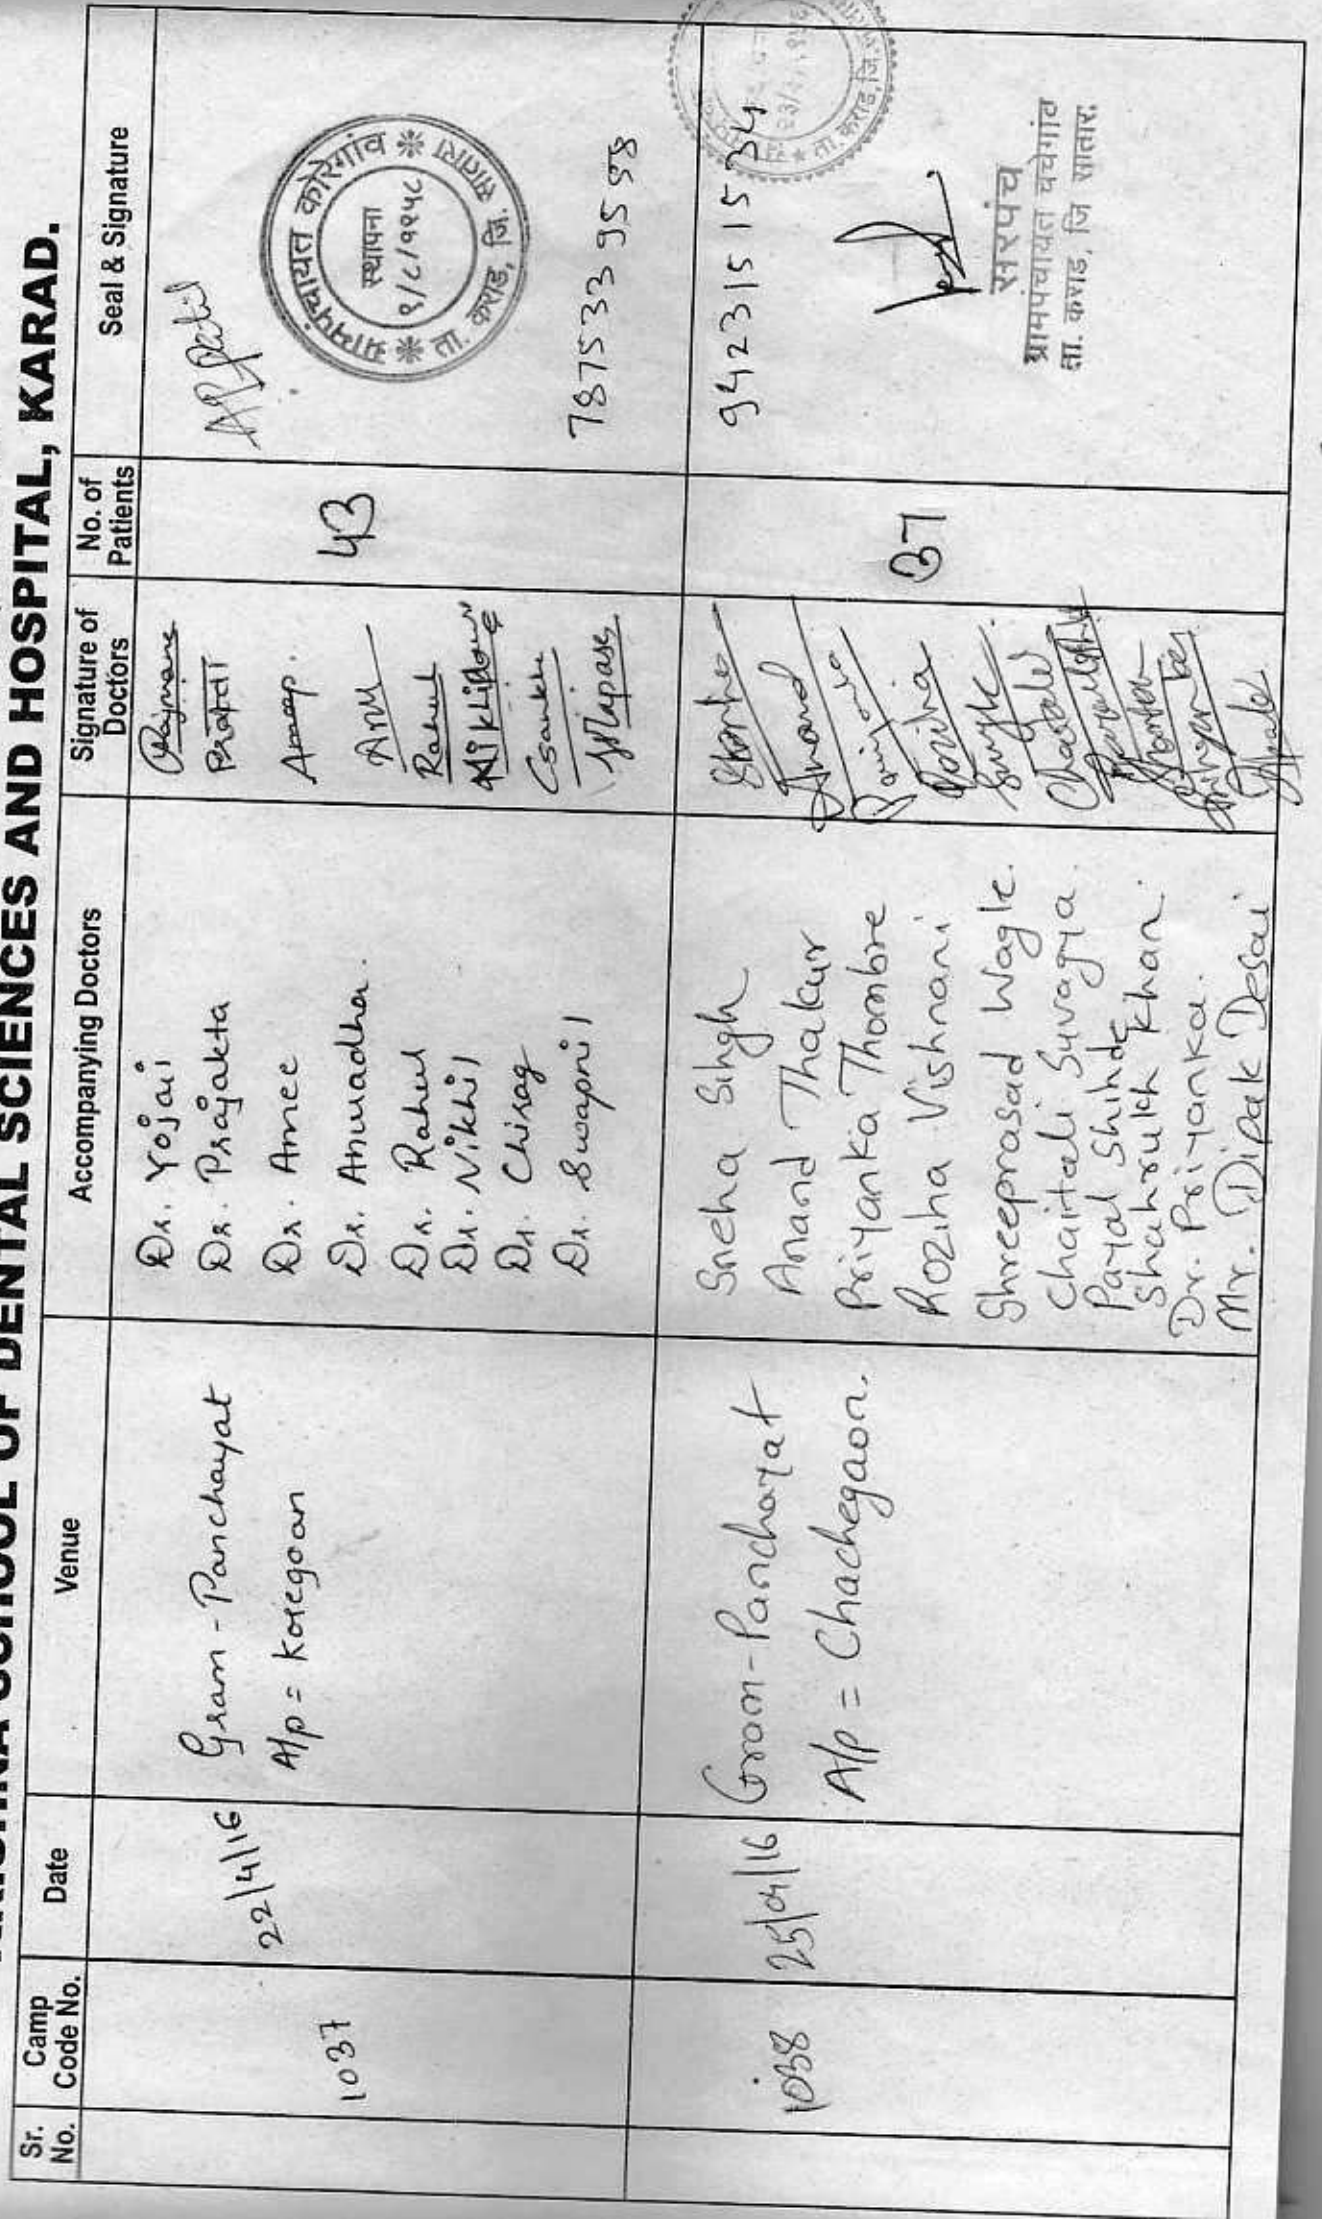 SCHOOL OF DENTAL SCIENCES AND HOSPITAL, KARAD.
Sr. No.
Camp Code No.
Date
Venue
Accompanying Doctors
Signature of Doctors
No. of Patients
Seal & Signature
1037
22/4/16
Gram-Panchayat
A/p = Koregoan
Dr. Yojai
Dr. Prajakta
Dr. Amee
Dr. Anuradha.
Dr. Rahul
Dr. Nikhil
Dr. Chirag
Dr. Swapnil
Anu
Rahul
43
APPatil
ग्रामपंचायत कोरेगांव
स्थापना
१/८/१९५८
ता. कराड, जि. सातारा
7875339598
1038
25/04/16
Gram-Panchayat
A/p = Chachegaon.
Sneha Singh
Anand Thakur
Priyanka Thombre
Roziha Vishnani
Shreeprasad Wagle.
Chaitali Suvagya.
Payal Shinde
Shahrukh Khan.
Dr. Priyanka.
Mr. Dipak Desai
Anand
37
9423151534
ता. कराड, जि.
सरपंच
ग्रामपंचायत चचेगांव
ता. कराड, जि सातारा.